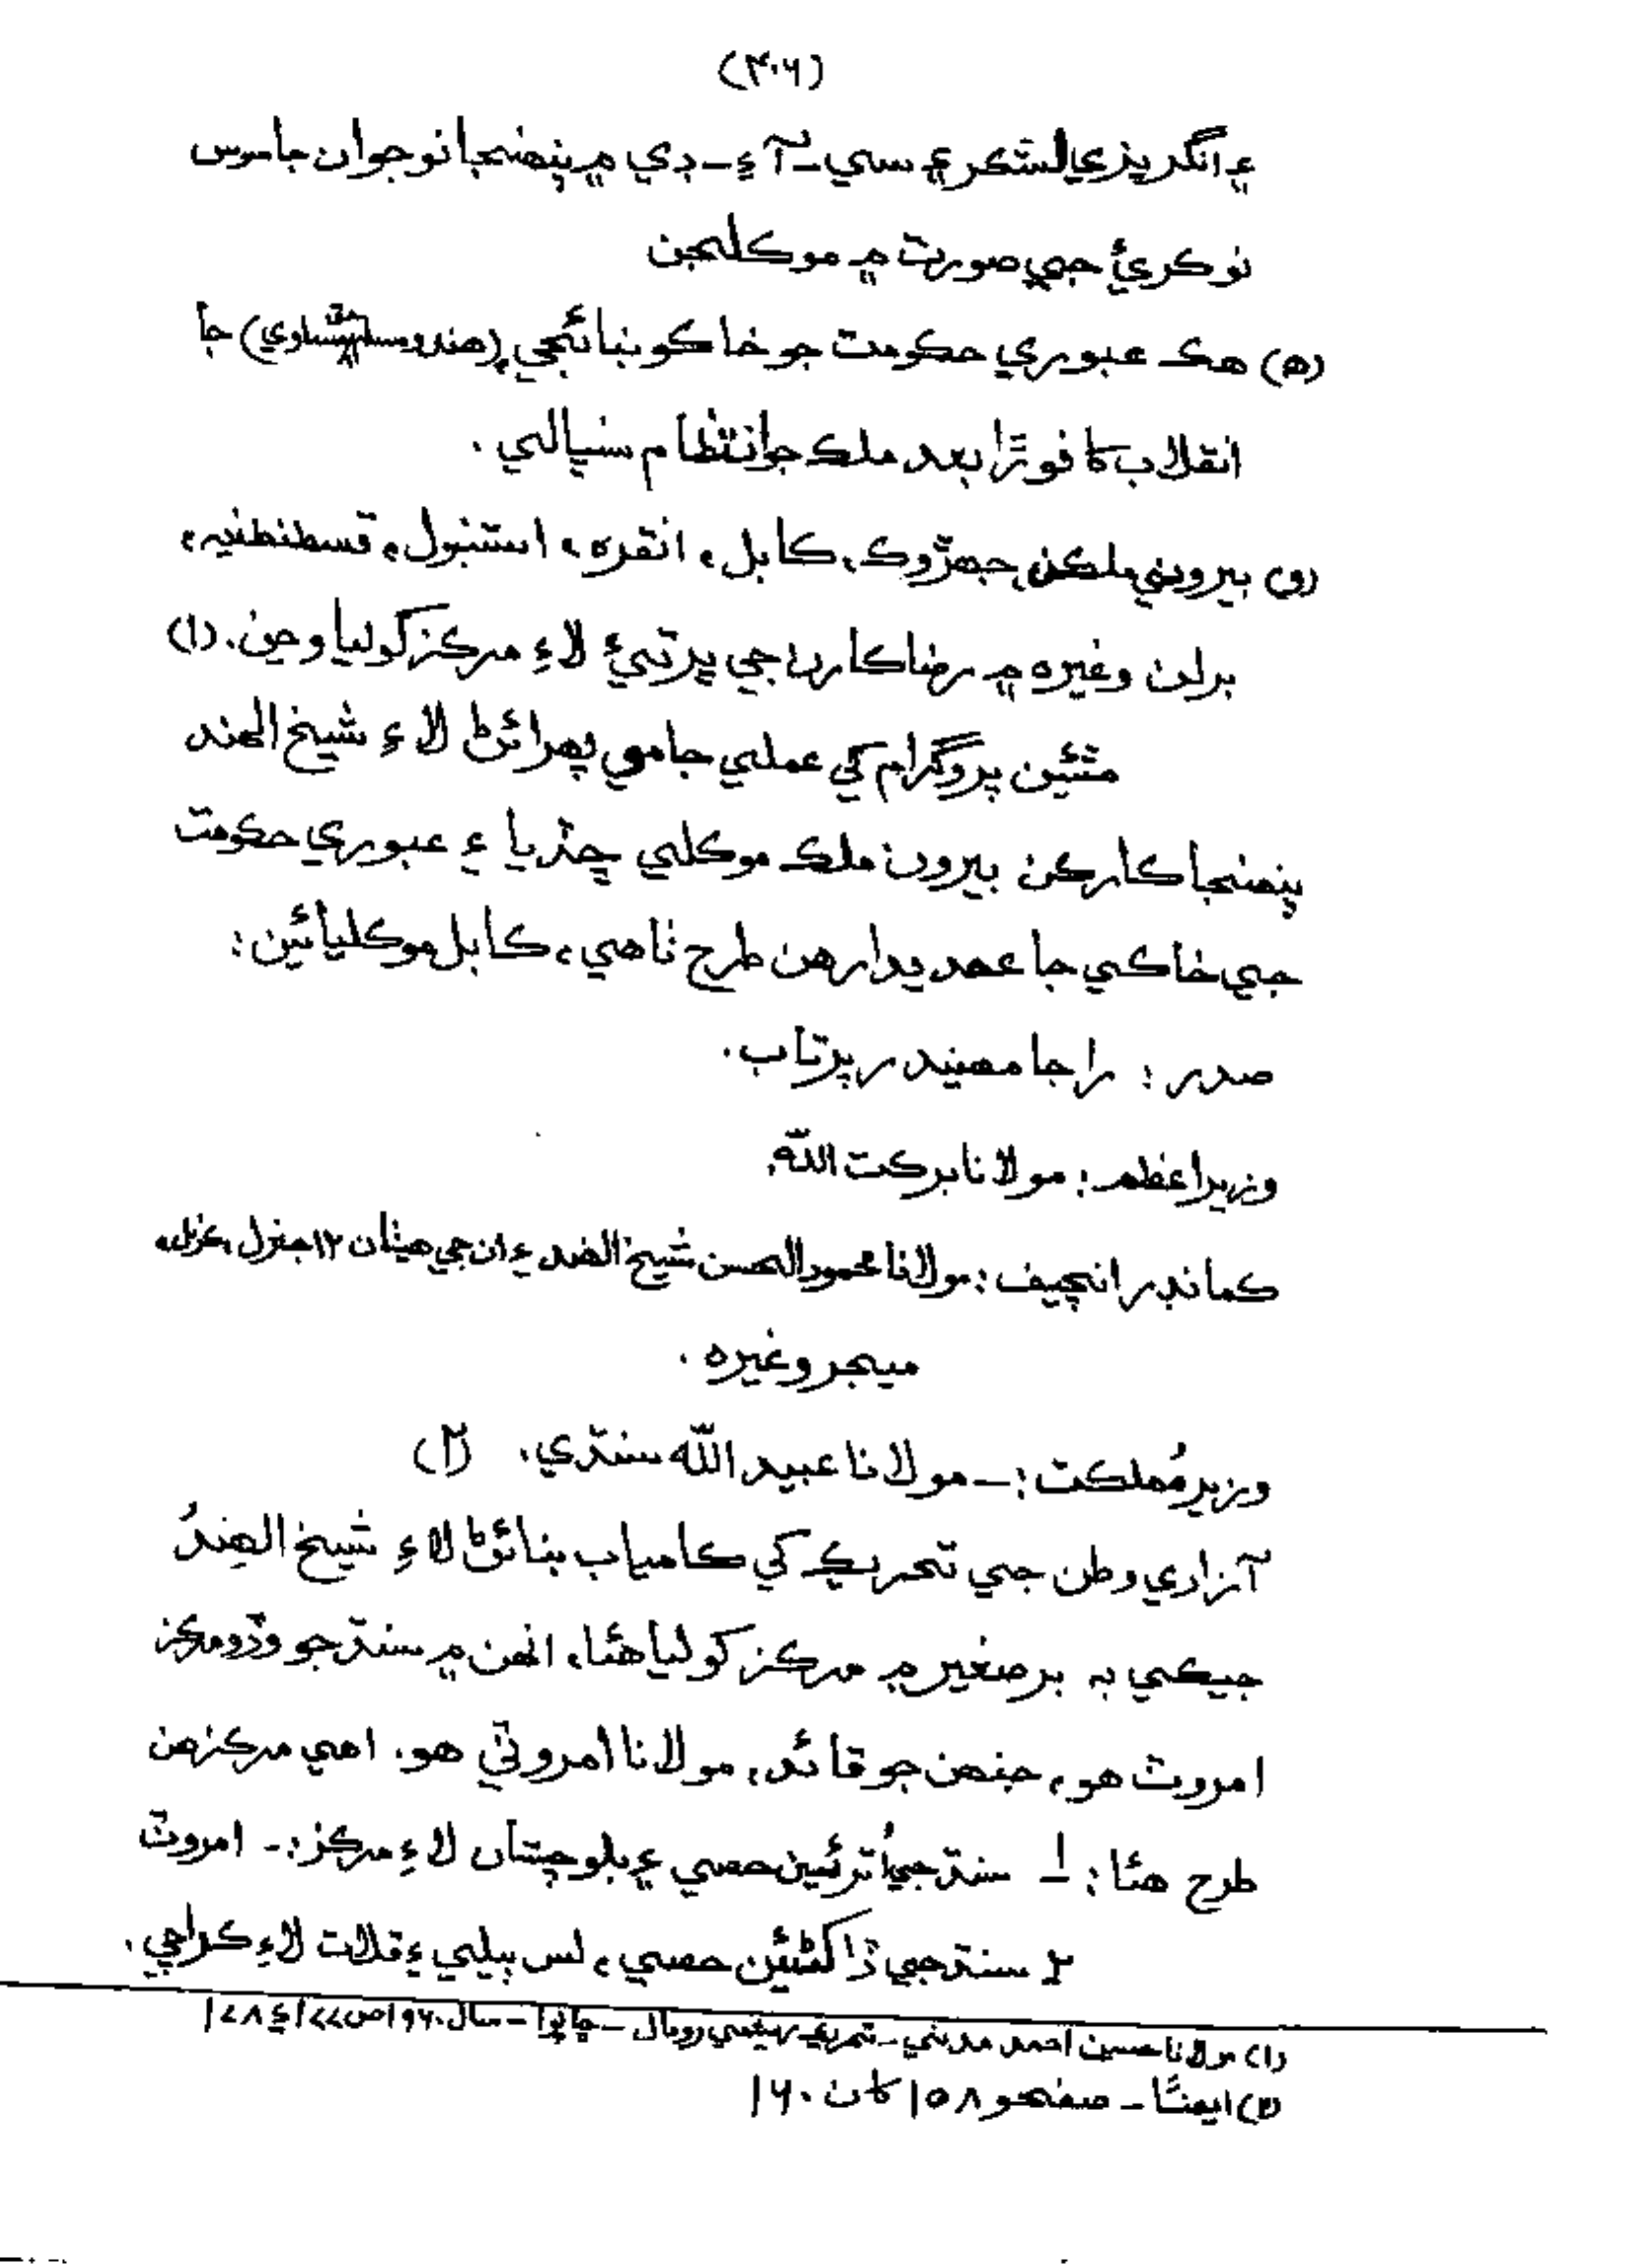 (۴۰۶)
۽ انگريزي لشڪر ۽ سي۔آءِ۔ڊي ۾ پنهنجا نوجوان جاسوس
نوڪريءَ جي صورت ۾ موڪلجن
(ه) هڪ عبوري حڪومت جو خاڪو بنائجي، (هندو مسلم حق مساوي) جا
انقلاب کا فورًا بعد ملڪ جو انتظام سنڀالي.
(و) بيروني ملڪن، جهڙوڪ، ڪابل، انقره، استنبول، قسطنطنيہ،
برلن وغيره ۾ رضاڪارن جي ڀرتيءَ لاءِ مرڪز کوليا وڃن. (۱)
مٿئين پروگرام کي عملي جامو پهرائڻ لاءِ شيخ الهند
پنهنجا ڪارڪن بيرون ملڪ موڪلي ڇڏيا ۽ عبوري حڪومت
جي خاڪي جا عهديدار هن طرح ٺاهي، ڪابل موڪليائين:
صدر: راجا مهيندر پرتاب.
وزيراعظم: مولانا برڪت الله.
ڪمانڊر انچيف: مولانا محمود الحسن شيخ الهند ۽ ان جي هيٺان ۱۲ جنرل، ڪرنل،
ميجر وغيره.
وزير مُملڪت:۔ مولانا عبيد الله سنڌي. (۲)
آزادي وطن جي تحريڪ کي ڪامياب بنائڻ لاءِ شيخ الهندُ
جيڪي بہ برصغير ۾ مرڪز کوليا هئا، انهن ۾ سنڌ جو وڏو مرڪز
امروٽ هو، جنهن جو قائد، مولانا امروٽي هو. اهي مرڪز هن
طرح هئا: ۱۔ سنڌ جي اُترئين حصي ۽ بلوچستان لاءِ مرڪز:۔ امروٽ
۲ سنڌ جي ڏاکڻئين حصي، لس ٻيلي ۽ قلات لاءِ ڪراچي.
(۱) مولانا حسين احمد مدني۔ تحريڪ ريشمي رومال۔ ڇاپو ۱۔ سال ۱۹۶۰ ص ۱۷۷ ۽ ۱۷۸
(۲) ايضًا۔ صفحو ۱۵۸ کان ۱۶۰